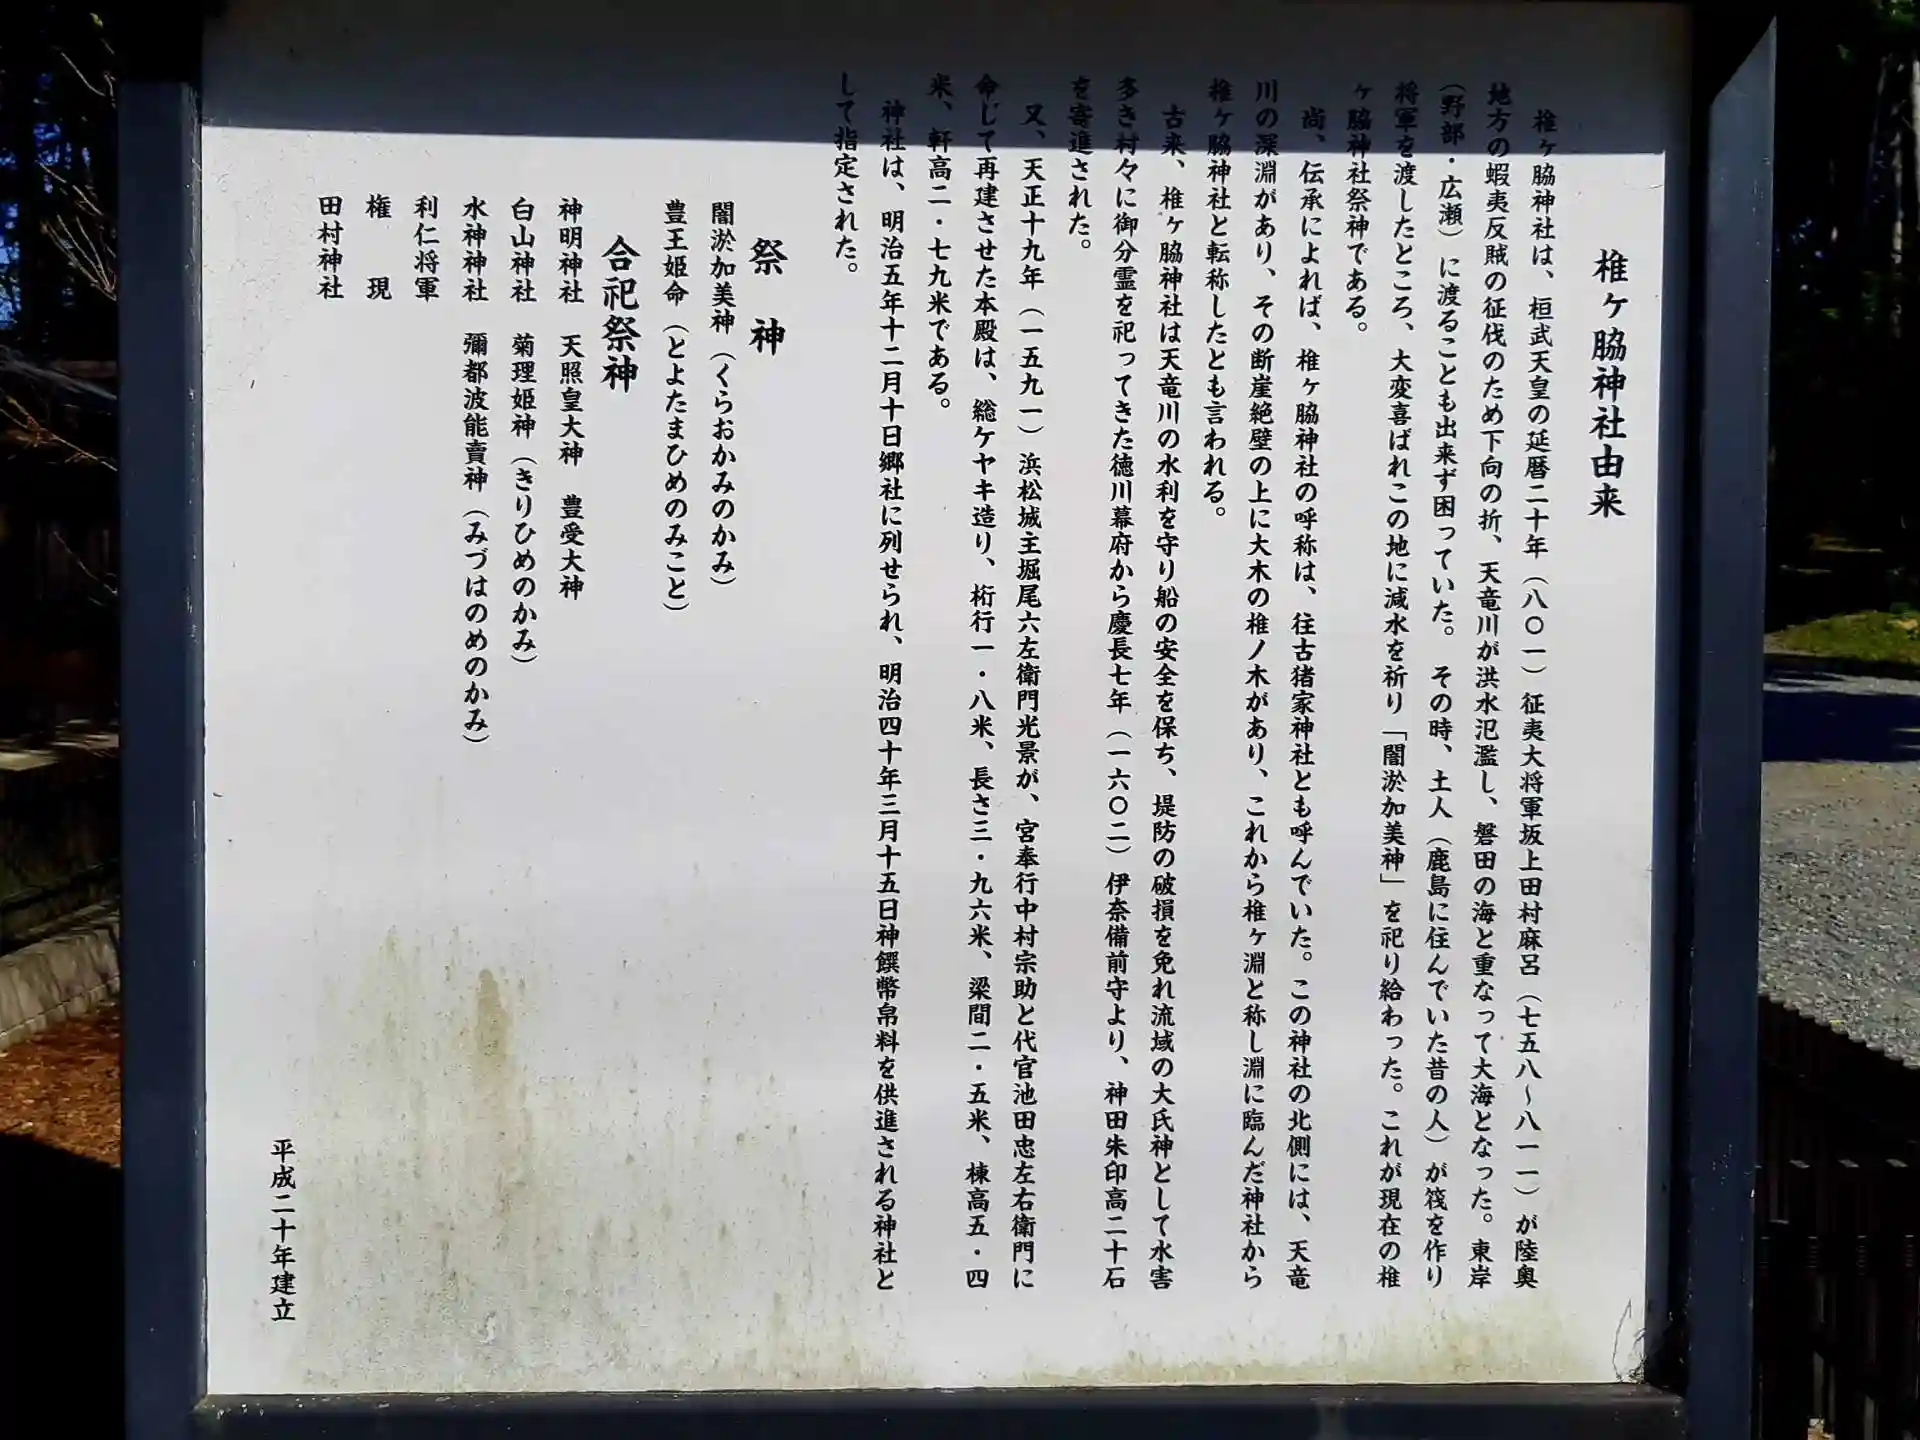 椎ヶ脇神社由来
椎ヶ脇神社は、桓武天皇の延暦二十年（八〇一）征夷大将軍坂上田村麻呂（七五八～八一一）が陸奥
地方の蝦夷反賊の征伐のため下向の折、天竜川が洪水氾濫し、磐田の海と重なって大海となった。東岸
（野部・広瀬）に渡ることも出来ず困っていた。その時、土人（鹿島に住んでいた昔の人）が筏を作り
将軍を渡したところ、大変喜ばれこの地に減水を祈り「闇淤加美神」を祀り給わった。これが現在の椎
ヶ脇神社祭神である。
尚、伝承によれば、椎ヶ脇神社の呼称は、往古猪家神社とも呼んでいた。この神社の北側には、天竜
川の深淵があり、その断崖絶壁の上に大木の椎ノ木があり、これから椎ヶ淵と称し淵に臨んだ神社から
椎ヶ脇神社と転称したとも言われる。
古来、椎ヶ脇神社は天竜川の水利を守り船の安全を保ち、堤防の破損を免れ流域の大氏神として水害
多き村々に御分霊を祀ってきた徳川幕府から慶長七年（一六〇二）伊奈備前守より、神田朱印高二十石
を寄進された。
又、天正十九年（一五九一）浜松城主堀尾六左衛門光景が、宮奉行中村宗助と代官池田忠左右衛門に
命じて再建させた本殿は、総ケヤキ造り、桁行一・八米、長さ三・九六米、梁間二・五米、棟高五・四
米、軒高二・七九米である。
神社は、明治五年十二月十日郷社に列せられ、明治四十年三月十五日神饌幣帛料を供進される神社と
して指定された。
祭　神
闇淤加美神（くらおかみのかみ）
豊玉姫命（とよたまひめのみこと）
合祀祭神
神明神社　天照皇大神　豊受大神
白山神社　菊理姫神（きりひめのかみ）
水神神社　彌都波能賣神（みづはのめのかみ）
利仁将軍
権　　現
田村神社
平成二十年建立